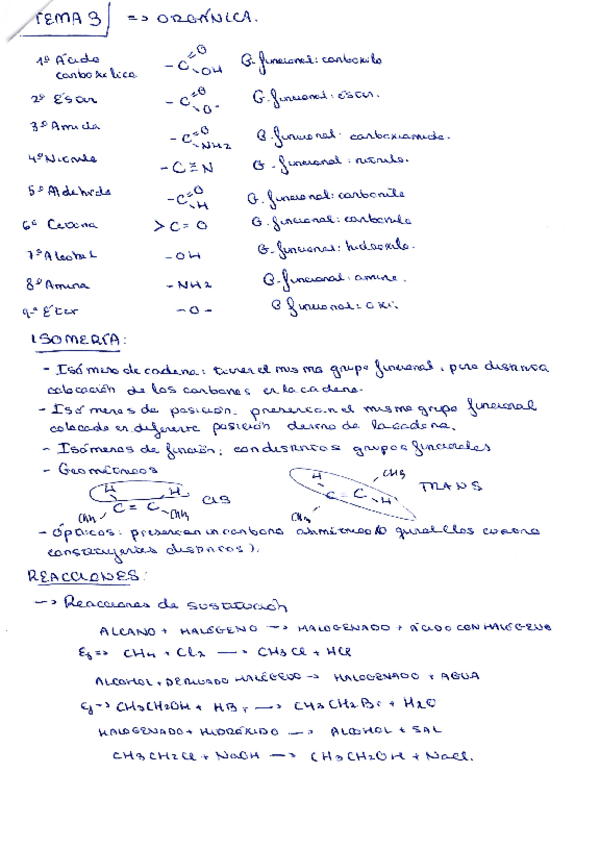 TEMA 3 => ORGÁNICA.
1º Ácido carboxílico -C=O OH G. funcional: carboxilo
2º Éster -C=O O- G. funcional: éster.
3º Amida -C=O NH2 G. funcional: carboxamida.
4º Nitrilo -C≡N G. funcional: nitrilo.
5º Aldehído -C=O H G. funcional: carbonilo
6º Cetona >C=O G. funcional: carbonilo
7º Alcohol -OH G. funcional: hidroxilo.
8º Amina -NH2 G. funcional: amina.
9º Éter -O- G funcional: oxi.
ISOMERÍA:
- Isómero de cadena: tienen el mismo grupo funcional, pero distinta
colocación de los carbonos en la cadena.
- Isómeros de posición. presentan el mismo grupo funcional
colocado en diferente posición dentro de la cadena.
- Isómeros de función; con distintos grupos funcionales
- Geométricos
H H CH3
C = C CIS C = C TRANS
CH3 CH3 CH3 H
- Ópticos: presentan un carbono asimétrico o quiral (los
constituyentes distintos).
REACCIONES:
-> Reacciones de sustitución
ALCANO + HALÓGENO -> HALOGENADO + ÁCIDO CON HALÓGENO
Ej => CH4 + Cl2 -> CH3Cl + HCl
ALCOHOL + DERIVADO HALÓGENO -> HALOGENADO + AGUA
Ej -> CH3CH2OH + HBr -> CH3CH2Br + H2O
HALOGENADO + HIDRÓXIDO -> ALCOHOL + SAL
CH3CH2Cl + NaOH -> CH3CH2OH + NaCl.